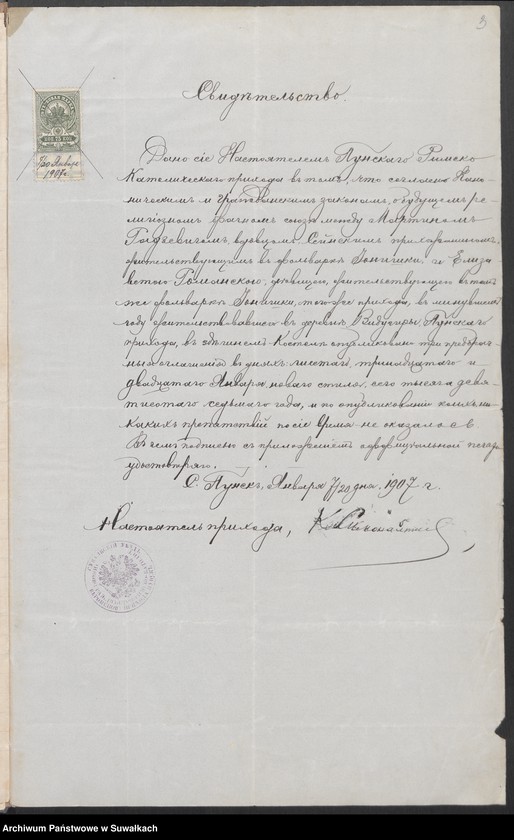 3
Свидѣтельство.
7/20 Января
1907 г.
Дано сіе Настоятелемъ Пунскаго Римско
Католическаго прихода въ томъ, что согласно Кано-
ническимъ и Гражданскимъ законамъ, о будущемъ ре-
лигіозномъ брачномъ союзѣ между Мартиномъ
вдовцомъ Сейнскимъ прихожаниномъ,
жительствующимъ въ фольваркѣ Іонишки, и Елиза-
ветою дѣвицею, жительствующею въ томъ
же фольваркѣ Іонишки, того же прихода, въ минувшемъ
году жительствовавшею въ деревнѣ Видугиры, Пунскаго
прихода, въ здѣшнемъ Костелѣ опубликовано три предбрач-
ныхъ оглашенія въ дняхъ: шестаго, тринадцатаго и
двадцатаго Января новаго стиля, сего тысяча девя-
тисотаго седьмаго года, и по опубликованіи коихъ ни-
какихъ препятствій по сіе время не оказалось
Въ чемъ подписью съ приложеніемъ оффиціальной печати
удостовѣряю.
С. Пунскъ, Января 7/20 дня, 1907 г.
Настоятель прихода,
Archiwum Państwowe w Suwałkach